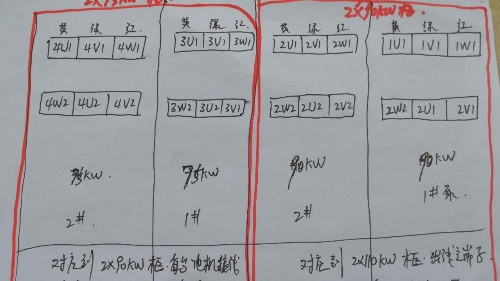 2×90KW柜.
黄 绿 红 黄 绿 红 黄 绿 红 黄 绿 红
4U1 4V1 4W1 3U1 3V1 3W1 2U1 2V1 2W1 1U1 1V1 1W1
4W2 4U2 4V2 3W2 3U2 3V1 2W2 2U2 2V2 2W2 2U1 2V1
75KW 75KW 90KW 90KW
1#泵
2# 1# 2#
对应到 2×90KW柜 电机接线 对应到 2×110KW柜 出线端子